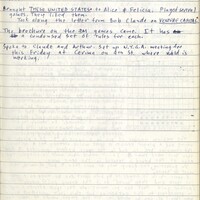 Brought THESE UNITED STATES to Alice & Felicia. Played several
games. They liked them.
Sent along the letter from Bob Claude on
The brochure on the games came. It has
a condensed set of rules for each.
Spoke to Claude and Arthur. Set up N.Y.G.A. meeting for
this Friday at on 8th St. where
working.